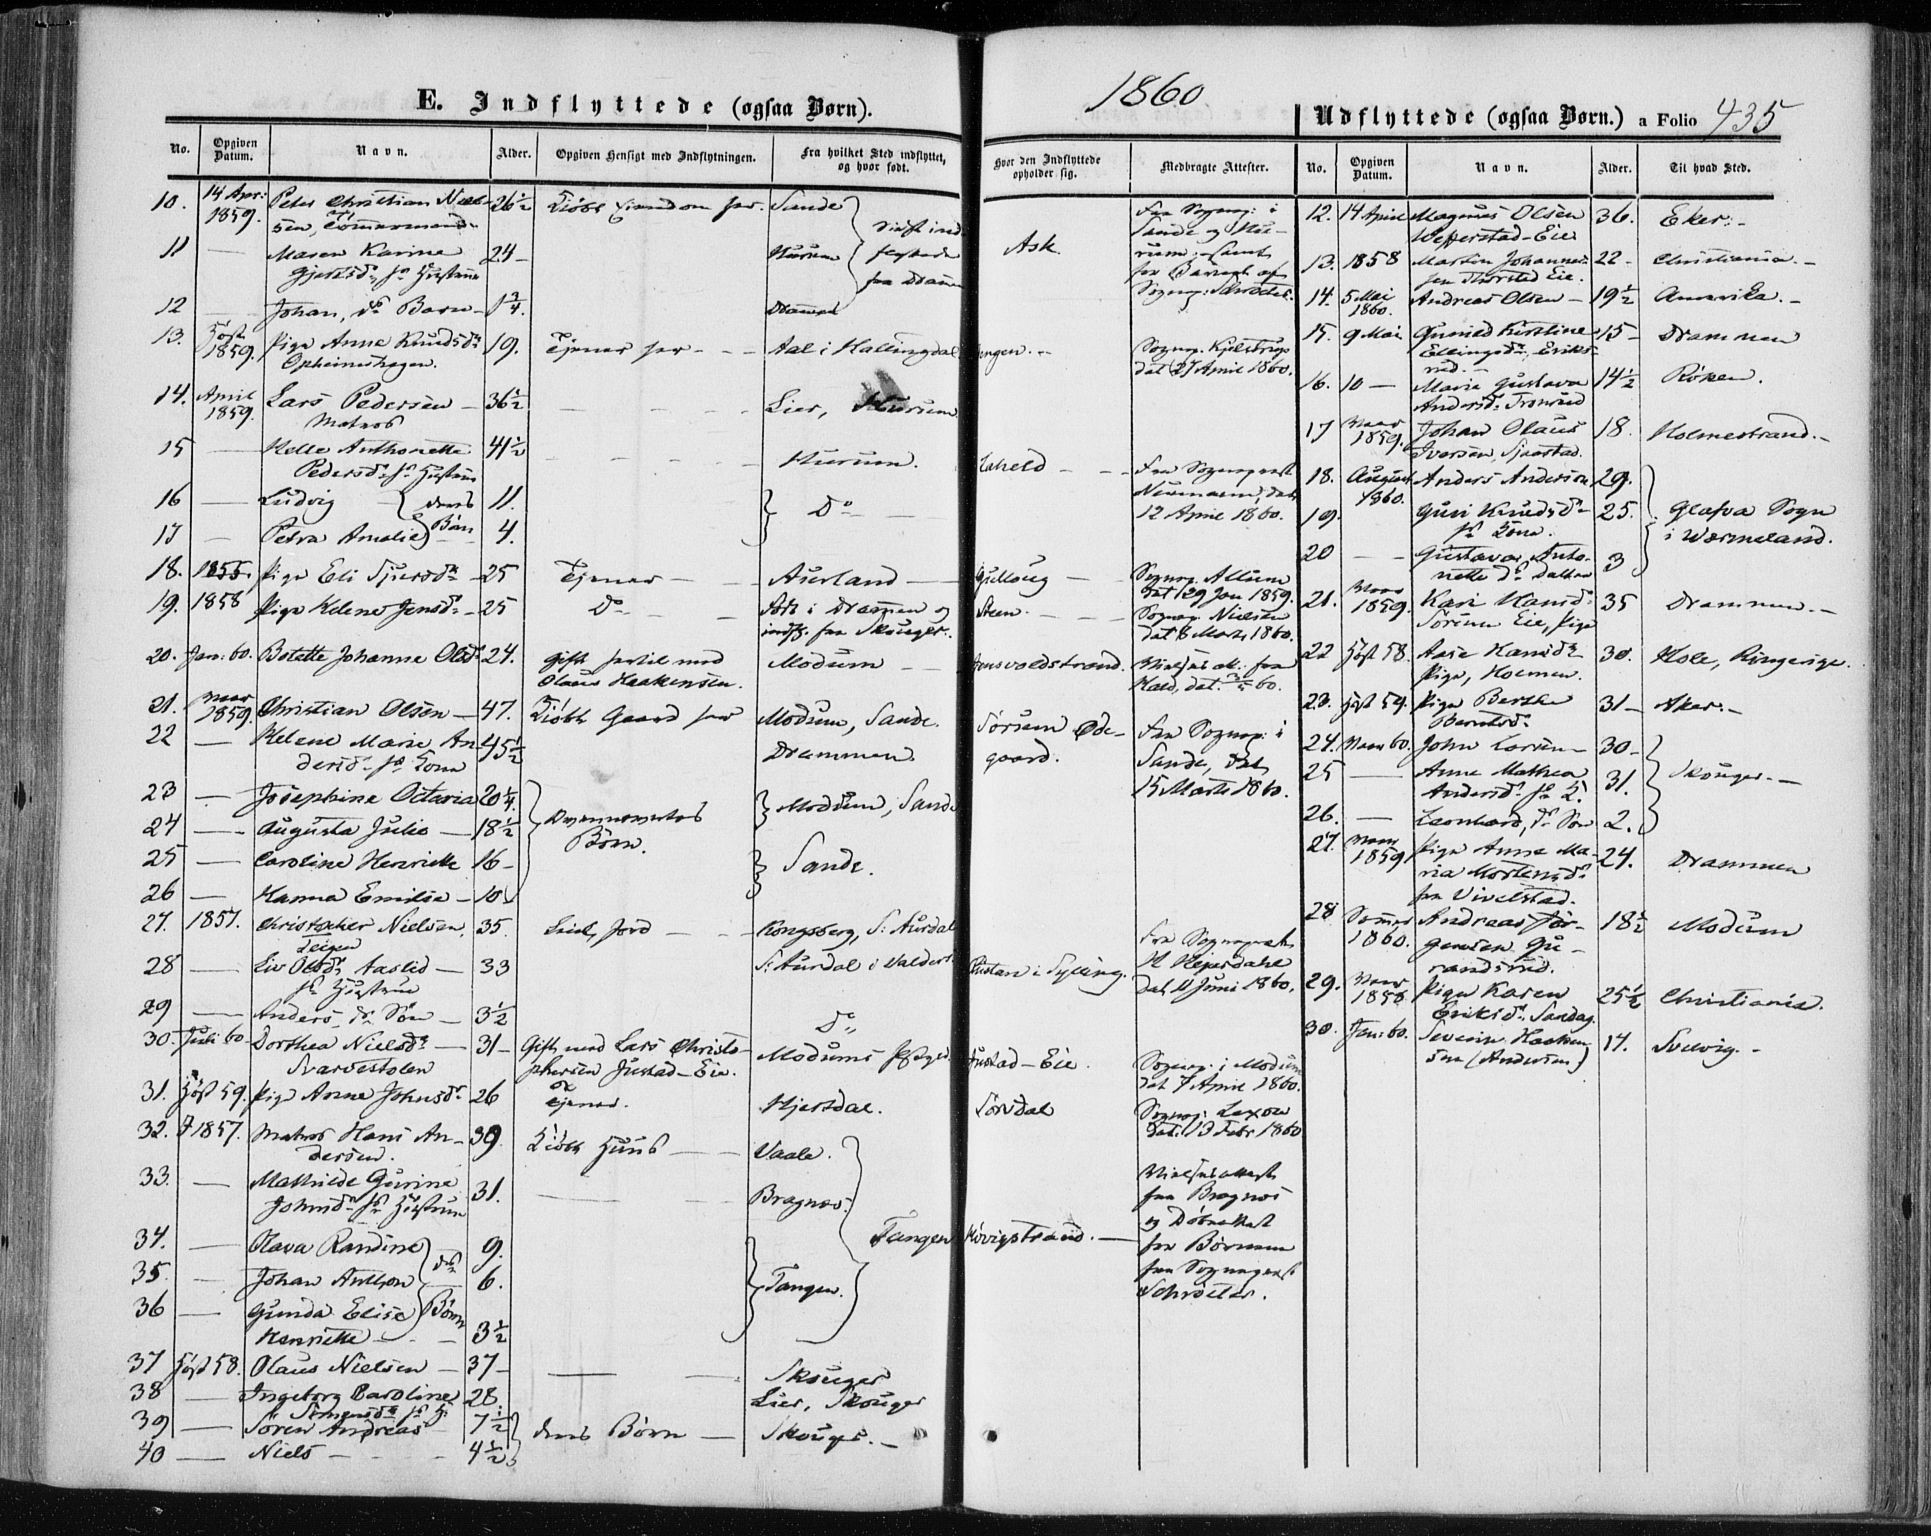 1860
E. Indflyttede (ogsaa Børn).
Udflyttede (ogsaa Børn.) a Folio 435
No. Opgiven Datum. Navn. Alder. Opgiven Hensigt med Indflytningen. Fra hvilket Sted indflyttet, og hvor født. Hvor den Indflyttede opholder sig. Medbragte Attester.
10. 14 Apr: 1859. Peter Christian Niel-
sen, Tømmermand 26½ Kiøbt Eiendom her. Sande
11 — Maren Karine
Gjertsd. h. Hustru 24 — Hurum
fra Drammen
Ask.
12 — Johan, d. Barn 1¾. Drammen
Fra Sognep: i
Sande og Hu-
rum, samt
for Barnet af
Sognep: Schrøter.
13. Høst 1859. Pige Anne Knudsd. 19. Tjener her — Aal i Hallingdal
Opheimshagen.
Sognep. Kjelstrup
dat 27 April 1860.
14. April 1859. Lars Pedersen — 36½ — Lier, Hurum
Matros
15 — Helle Anthonette 41½ — Hurum.
Pedersd. h. Hustru
16 — Ludvig 11.
deres Børn
Do
17 — Petra Amalie 4.
Fra Sognepræst
Neumann, dat.
12 April 1860.
18. 1855. Pige Eli Sjursd. 25 Tjener — Aurland — Gulloug — Sognep. Altum
dat 29 Jan 1859.
19. 1858 Pige Helene Jensd. 25 Do — Født i Drammen og
indfl. fra Skouger. Steen — Sognep. Nielsen
dat 8 Marts 1860.
20. Jan: 60. Botette Johanne Olsd. 24. Gift hertil med
Olaus Haakensen. Modum — Vielses at. fra
dat. 3/5 60.
21. Mars 1859. Christian Olsen — 47. Kiøbt Gaard her Modum, Sande.
22 — Helene Marie An-
dersd. h. Kona 45½ Drammen.
Sørum Øde-
gaard.
Fra Sognep: i
Sande, dat.
15 Marts 1860.
23 — Josephine Octavia 20¼. Modum, Sande
24 — Augusta Julie — 18½
Børn.
25 — Caroline Henriette 16 — Sande.
26 — Hanna Emilie — 10
27. 1857. Christopher Nielsen, 35. Leiet Jord — Kongsberg, S. Aurdal
Teigen
28 — Liv Olsd. Aaslid — 33 S. Aurdal i Valders
h. Hustru
i Sylling.
Fra Sognepræst
H Hejerdahl
dat. 11 Juni 1860.
29 — Anders, d. Søn — 3½ Do
30. Juli 60. Dorthea Nielsd. — 31 — Gift med Lars Christo-
Svarvestolen phersen Justad-Eie. Modums Prgd. Justad-Eie. Sognep. i Modum
dat 7 April 1860.
31. Høst 59. Pige Anne Johnsd. 26 Tjener. Hjertdal. Sørsdal Sognep: Laxou
dat. 13 Febr 1860
32. 1857. Matros Hans An-
dersen. 39 Kiøbt Huus — Vaale.
33. — Mathilde Gurine
Johnsd. h. Hustru 31. — Bragnæs.
Tangen
34. — Olava Randine 9.
35. — Johan Anthon 6.
Tangen.
36 — Gunda Elise
Henriette — 3½
Børn
Vielsesattest
fra Bragnæs
og Døbeattest
for Børnene
fra Sognepræst
Schrøter.
37 Høst 58. Olaus Nielsen — 37 — Skouger
38 — Ingeborg Caroline 28. Lier, Skouger
39 — Søren Andreas 7½ deres Børn — Skouger. —
40 — Niels — 4½
No. Opgiven Datum. Navn. Alder. Til hvad Sted.
12. 14 April Magnus Olsen 36. Eker. —
Wefferstad-Eie.
13. 1858 Martin Johannes-
sen Thorsted Eie. 22 — Christiania. —
14. 5 Mai 1860. Andreas Olsen — 19½ Amerika. —
15. 9 Mai Gunild Kirstine 15 — Drammen
Ellingsd. Eriks-
rud. —
16. 10 — Marie Gustava 14½ Røken.
Andersd. Tronrud
17 Mars 1859. Johan Olaus 18. Holmestrand. —
Iversen, Sjaastad.
18. August 1860. Anders Anderson 29.
19. Guri Knudsd. 25. Glafva Sogn
h. Kone. i Wermeland.
20 — Gustava Anto-
nette d. Datter 3
21. Mars 1859. Kari Hansd. 35 Drammen. —
Sørum Eie, Pige
22 Høst 58. Aase Hansd. 30. Hole, Ringerige.
Pige, Holmen.
23. Høst 59. Pige Berthe 31 — Aker. —
Berntsd.
24. Mars 60. John Larsen — 30 —
25 — Anne Mathea
Andersd. h. K. 31. Skouger. —
26. — Leonhard, d. Søn 2.
27. Mars 1859 Pige Anne Ma-
ria Mortensd.
fra Vivelstad. 24. Drammen
28 Sommer 1860. Andreas Jør-
gensen Gu-
randsrud. 18½ Modum
29. Mars 1858 Pige Karen
Eriksd. Landag. 25½ Christiania.
30. Jan: 60. Severin Haaken-
sen (Andersen) 17. Svelvig. —